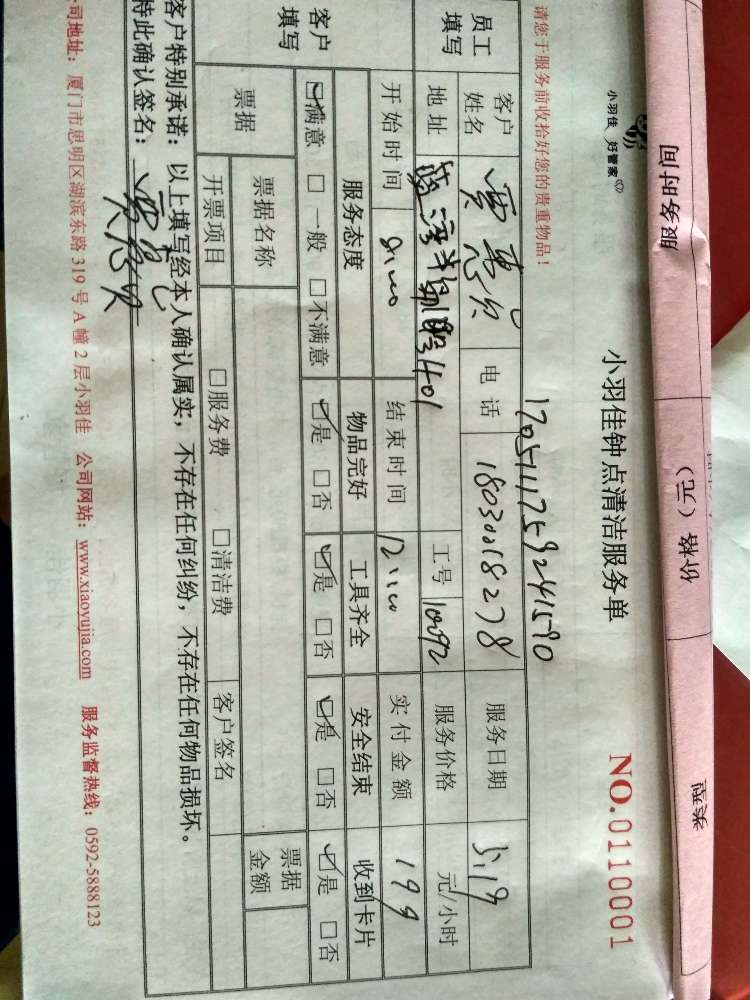 服务时间 价格（元） 类型
小羽佳 好管家
小羽佳钟点清洁服务单 NO.0110001
请您于服务前收拾好您的贵重物品！
员工填写 客户姓名 电话 18030218278 服务日期 5.19
地址 工号 10092 服务价格 元/小时
开始时间 结束时间 12:00 实付金额 199
客户填写 服务态度 物品完好 工具齐全 安全结束 收到卡片
☑满意 □一般 □不满意 ☑是 □否 ☑是 □否 ☑是 □否 ☑是 □否
票据 票据名称 票据金额
开票项目 □服务费 □清洁费 客户签名
客户特别承诺：以上填写经本人确认属实，不存在任何纠纷，不存在任何物品损坏。
特此确认签名：
公司地址：厦门市思明区湖滨东路319号A幢2层小羽佳 公司网站：www.xiaoyujia.com 服务监督热线：0592-5888123